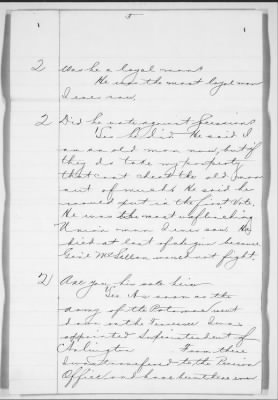 5
2 Was he a loyal man?
He was the most loyal man
I ever saw.
2 Did he vote against Secession
Yes he did. He said I
am an old man now, but if
they do take my property
that cant cheat the old man
out of much. He said he
would put in the first Vote.
He was the most unflinching
Union man I ever saw. He
died at last of chagrin because
Genl McClellan would not fight.
2 Are you his
Yes As soon as the
army of the Potomac went
down on the I was
appointed Superintendent of
Arlington From there
I was transferred to the
Office and have been there ever